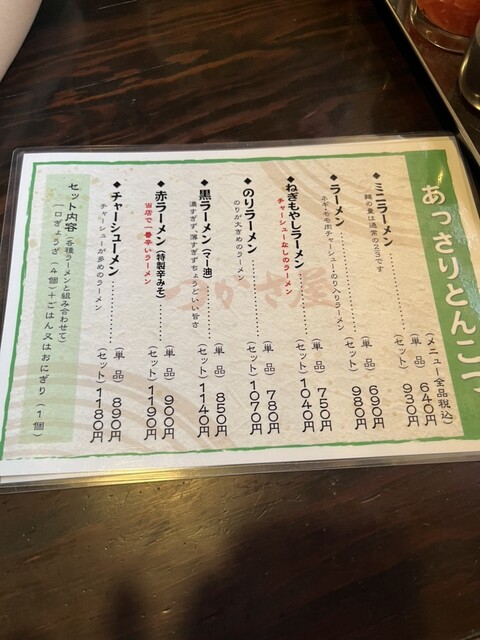 あっさりとんこつ
(メニュー全品税込)
◆ミニラーメン……(単品) 640円
麺の量は通常の2/3です (セット) 930円
◆ラーメン……(単品) 690円
ネギ・モモ肉チャーシュー・のり入りラーメン (セット) 980円
◆ねぎもやしラーメン……(単品) 750円
チャーシューなしのラーメン (セット) 1040円
◆のりラーメン……(単品) 780円
のりが大きめのラーメン (セット) 1070円
◆黒ラーメン(マー油)……(単品) 850円
濃すぎず、薄すぎずちょうどいい旨さ (セット) 1140円
◆赤ラーメン(特製辛みそ)……(単品) 900円
当店で一番辛いラーメン (セット) 1190円
◆チャーシューメン……(単品) 890円
チャーシューが多めのラーメン (セット) 1180円
セット内容(各種ラーメンと組み合わせて)
(一口ぎょうざ(4個)+ごはん又はおにぎり(1個)
つかさ屋